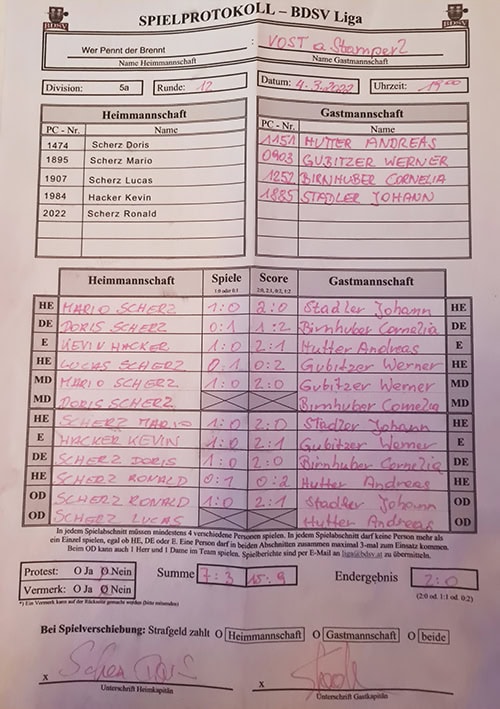 SPIELPROTOKOLL – BDSV Liga
BDSV BDSV
Wer Pennt der Brennt : VOST a Stamperl
Name Heimmannschaft Name Gastmannschaft
Division: 5a Runde: 12 Datum: 4.3.2022 Uhrzeit: 1900
Heimmannschaft Gastmannschaft
PC - Nr. Name PC - Nr. Name
1474 Scherz Doris 1151 HUTTER ANDREAS
1895 Scherz Mario 0903 GUBITZER WERNER
1907 Scherz Lucas 1252 BIRNHUBER CORNELIA
1984 Hacker Kevin 1885 STADLER JOHANN
2022 Scherz Ronald
Heimmannschaft Spiele Score Gastmannschaft
1:0 oder 0:1 2:0, 2:1, 0:2, 1:2
HE MARIO SCHERZ 1:0 2:0 Stadler Johann HE
DE DORIS SCHERZ 0:1 1:2 Birnhuber Cornelia DE
E KEVIN HACKER 1:0 2:1 Hutter Andreas E
HE LUCAS SCHERZ 0:1 0:2 Gubitzer Werner HE
MD MARIO SCHERZ 1:0 2:0 Gubitzer Werner MD
MD DORIS SCHERZ Birnhuber Cornelia MD
HE SCHERZ MARIO 1:0 2:0 Stadler Johann HE
E HACKER KEVIN 1:0 2:1 Gubitzer Werner E
DE SCHERZ DORIS 1:0 2:0 Birnhuber Cornelia DE
HE SCHERZ RONALD 0:1 0:2 Hutter Andreas HE
OD SCHERZ RONALD 1:0 2:1 Stadler Johann OD
OD SCHERZ LUCAS Hutter Andreas OD
In jedem Spielabschnitt müssen mindestens 4 verschiedene Personen spielen. In jedem Spielabschnitt darf keine Person mehr als
ein Einzel spielen, egal ob HE, DE oder E. Eine Person darf in beiden Abschnitten zusammen maximal 3-mal zum Einsatz kommen.
Beim OD kann auch 1 Herr und 1 Dame im Team spielen. Spielberichte sind per E-Mail an liga@bdsv.at zu übermitteln.
Protest: O Ja O Nein Summe 7:3 15:9 Endergebnis 2:0
Vermerk: O Ja O Nein (2:0 od. 1:1 od. 0:2)
*) Ein Vermerk kann auf der Rückseite gemacht werden (bitte mitsenden)
Bei Spielverschiebung: Strafgeld zahlt O Heimmannschaft O Gastmannschaft O beide
x x
Unterschrift Heimkapitän Unterschrift Gastkapitän